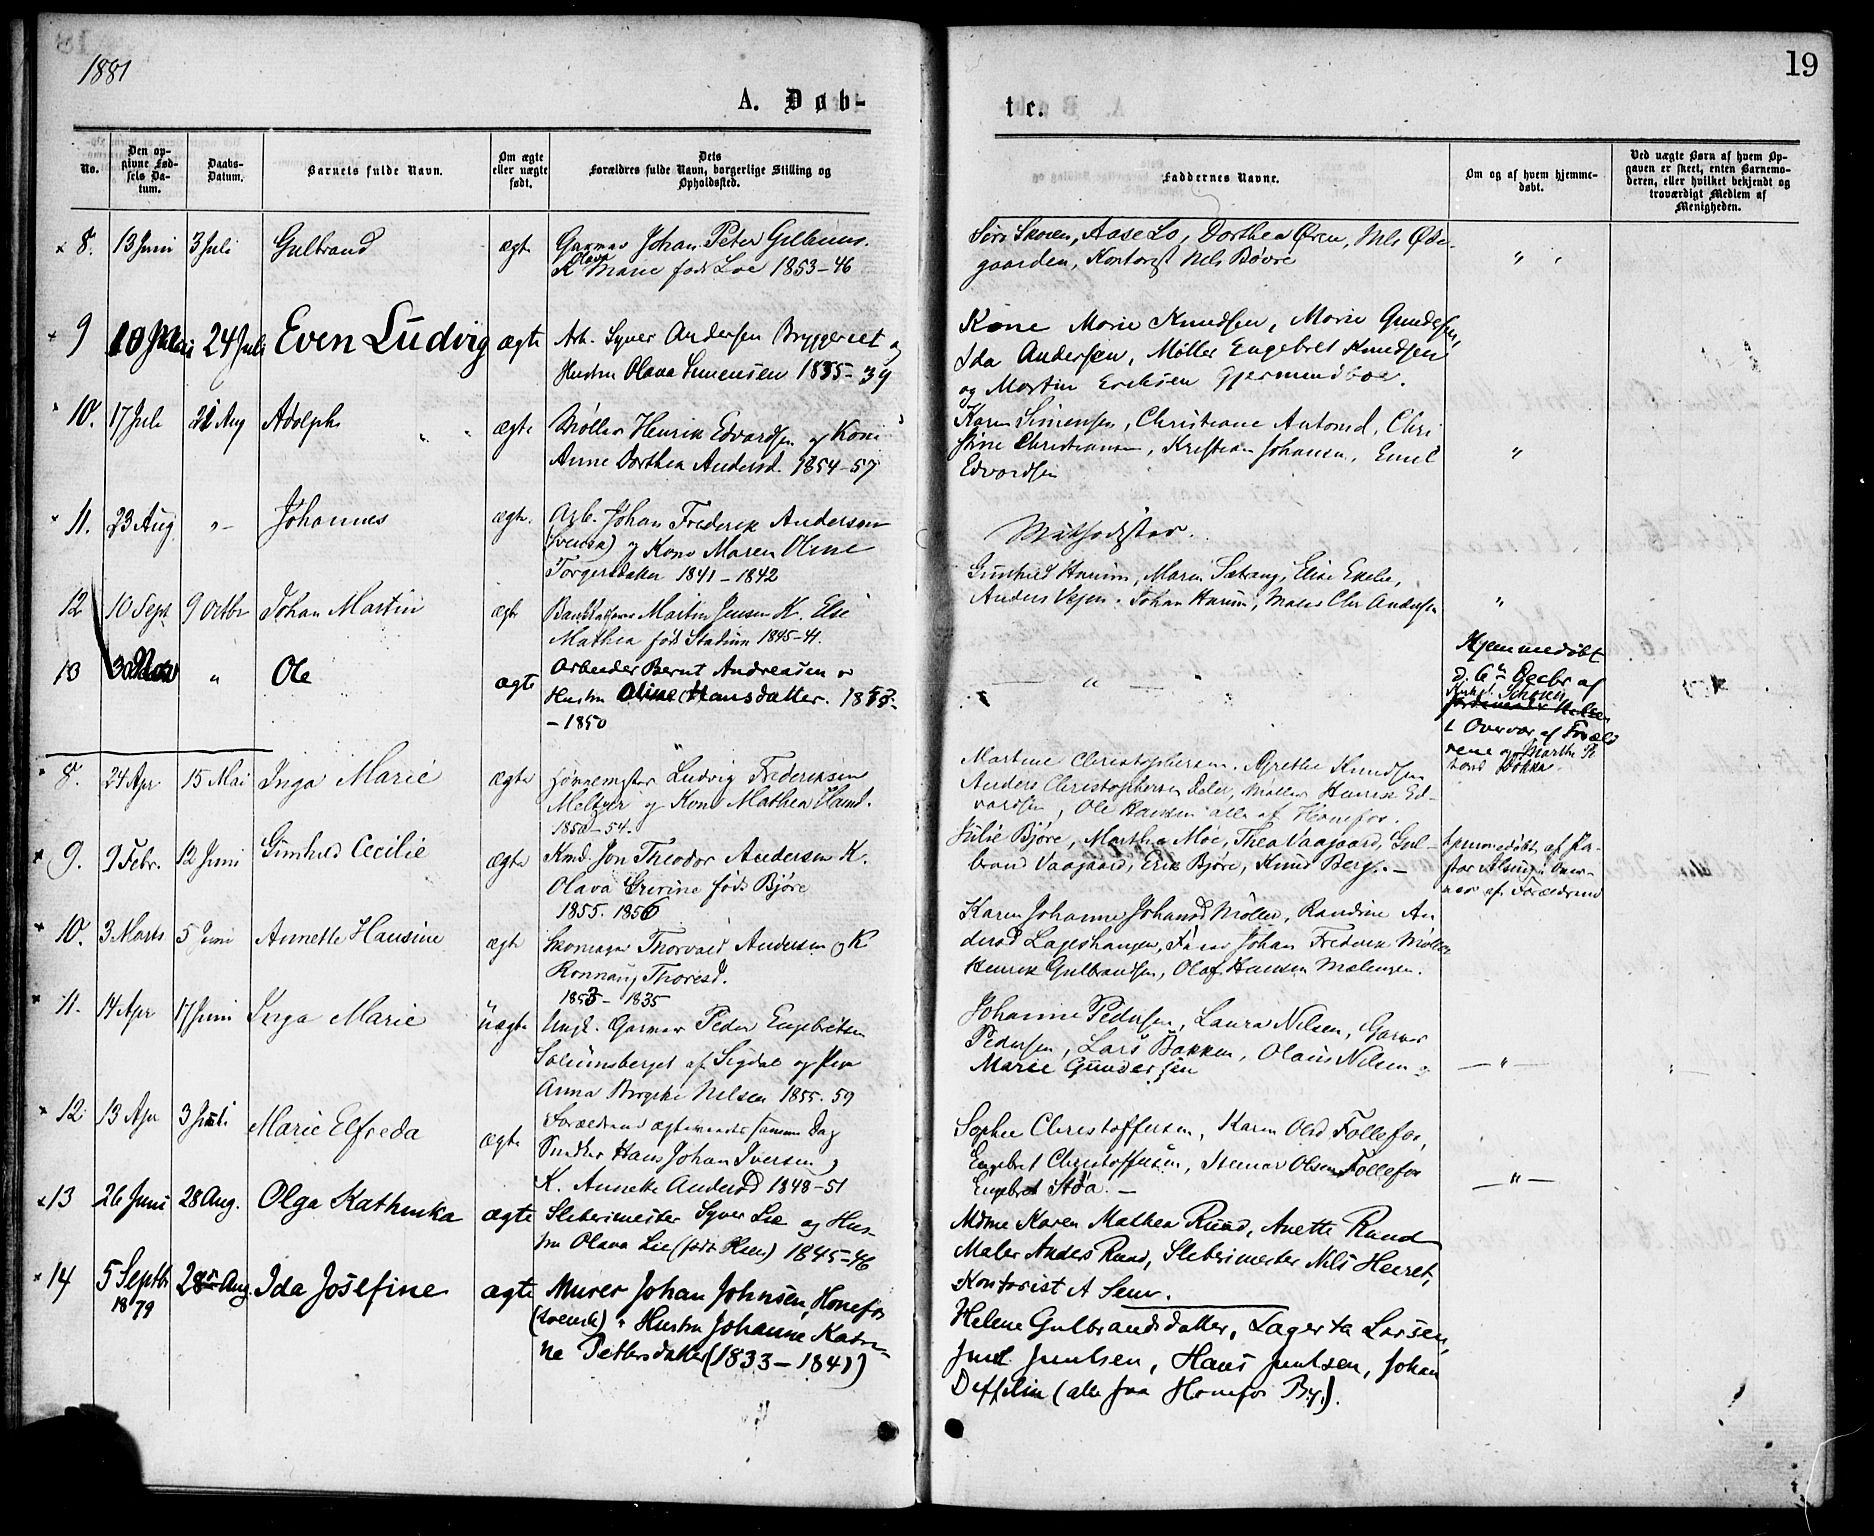 1881
19
A. Døb-
te.
No.
Den op-
givne Fød-
sels Da-
tum.
Daabs-
Datum.
Barnets fulde Navn.
Om ægte
eller uægte
født.
Dets
Forældres fulde Navn, borgerlige Stilling og
Opholdssted.
Faddernes Navne.
Om og af hvem hjemme-
døbt.
Ved uægte Børn af hvem Op-
gaven er skeet, enten Barnemo-
deren, eller hvilket bekjendt og
troværdigt Medlem af
Menigheden.
8. 13 Juni 3 Juli Gulbrand ægte Garver Johan Peter
K Olava Marie født Loe 1853-46
Aase Lo, Dorthea Øren, Nils Øde-
gaarden, Kontorist Nels Bøvre
9 10 24 Juli Even Ludvig ægte Arb. Syver Andersen Bryggeriet og
Hustru Olava Simensen 1835-39
Kone Marie Knudsen, Marie Gundersen,
Ida Andersen, Møller Engebret Knudsen
og Martin Eriksen Gjermundboe.
10. 17 Juli 21 Aug Adolph ægte Møller Henrik Edvardsen og Kone
Anne Dorthea Andersd. 1854-57
Karen Simensen, Christiane Antonsd, Chri
stine Christiansen, Kristian Johansen, Emil
Edvardsen
11. 23 Aug "- Johannes ægte. Arb. Johan Frederik Andersen
(svensk) og Kone Maren Oline
Torgersdatter 1841-1842
Methodister.
12 10 Sept 9 Octbr Johan Martin ægte Martin Jensen K. Elie
Mathea født Stadum 1845-41.
Gunhild Harum, Maren Sætrang, Elise
Anders Vejen, Johan Harum, Maler Chr Andersen "
13 30 Nov " Ole ægte Arbeider Bernt Andreasen o
Hustru Oline Hansdatter. 1853-
- 1850
Hjemmedøbt
d. 6te Decbr af
i Overvær af Foræld
rene og Marthe
8. 24 Apr 15 Mai Inga Marie ægte Ludvig Frederiksen
Meltzer og Kone Mathea Hansd.
1850-54.
Martine Christophersen. Agrethe Knudsen
Anders Christophersen Møller Henrik Ed-
vardsen, Ole Hansen alle af Hønefos.
9. 9 Febr. 12 Juni Gunhild Cecilie ægte Kmd. Jon Theodor Andersen K.
Olava Grerine født Bjøre
1855. 1856
Julie Bjøre, Marthea Moe, Thea Vaagaard, Gul-
brand Vaagaard, Erik Bjøre, Knud Berg. -
hjemmedøbt af Pa-
stor i Over-
vær af Forældrene
10. 3 Marts 5 Juni Annette Hansine ægte Skomager Thorvald Andersen og K
Ronnaug Thoresd.
1853-1835
Karen Johanne Johansd Møller, Randine An
dersd Lageshaugen, Johan Frederik Møller
Henrik Gulbrandsen, Olaf Hansen Mælingen.
11. 14 Apr 17 Juni Inga Marie uægte Ungk. Garver Peder Engebretsen
Solumsberget af Sigdal og Pige
Anna Birgithe Nelsen 1855. 59
Johanne Pedersen, Laura Nilsen, Garver
Pedersen, Lars Bakken, Olaus Nilsen og
Marie Gundersen
- " -
12. 13 Apr 3 Juli Marie Elfreda ægte Forældrene ægteviede samme Dag
Snedker Hans Johan Iversen og
K. Annette Andersd 1848-51
Sophie Christoffersen, Karen Olsd Follefos,
Engebret Christoffersen, Steener Olsen Follefos
Engebret -
- " -
13 26 Juni 28 Aug. Olga Kathinka ægte Sliberimester Syver Lie og Hus-
tru Olava Lie (født Hsen) 1845-46
Mdme Karen Mathea Ruud, Anette Ruud
Maler Anders Ruud, Sliberimester Nils Heiret,
Kontorist A
14 5 Septbr
1879 28de Aug. Ida Josefine ægte Murer Johan Johnsen, Hønefos
(svensk) o Hustru Johanne Katri-
ne Pettersdatter (1833-1841)
Helene Gulbrandsdatter, Lagerta Larsen,
Juul Juulsen, Hans Juulsen, Johan
(alle fra Hønefos By.).